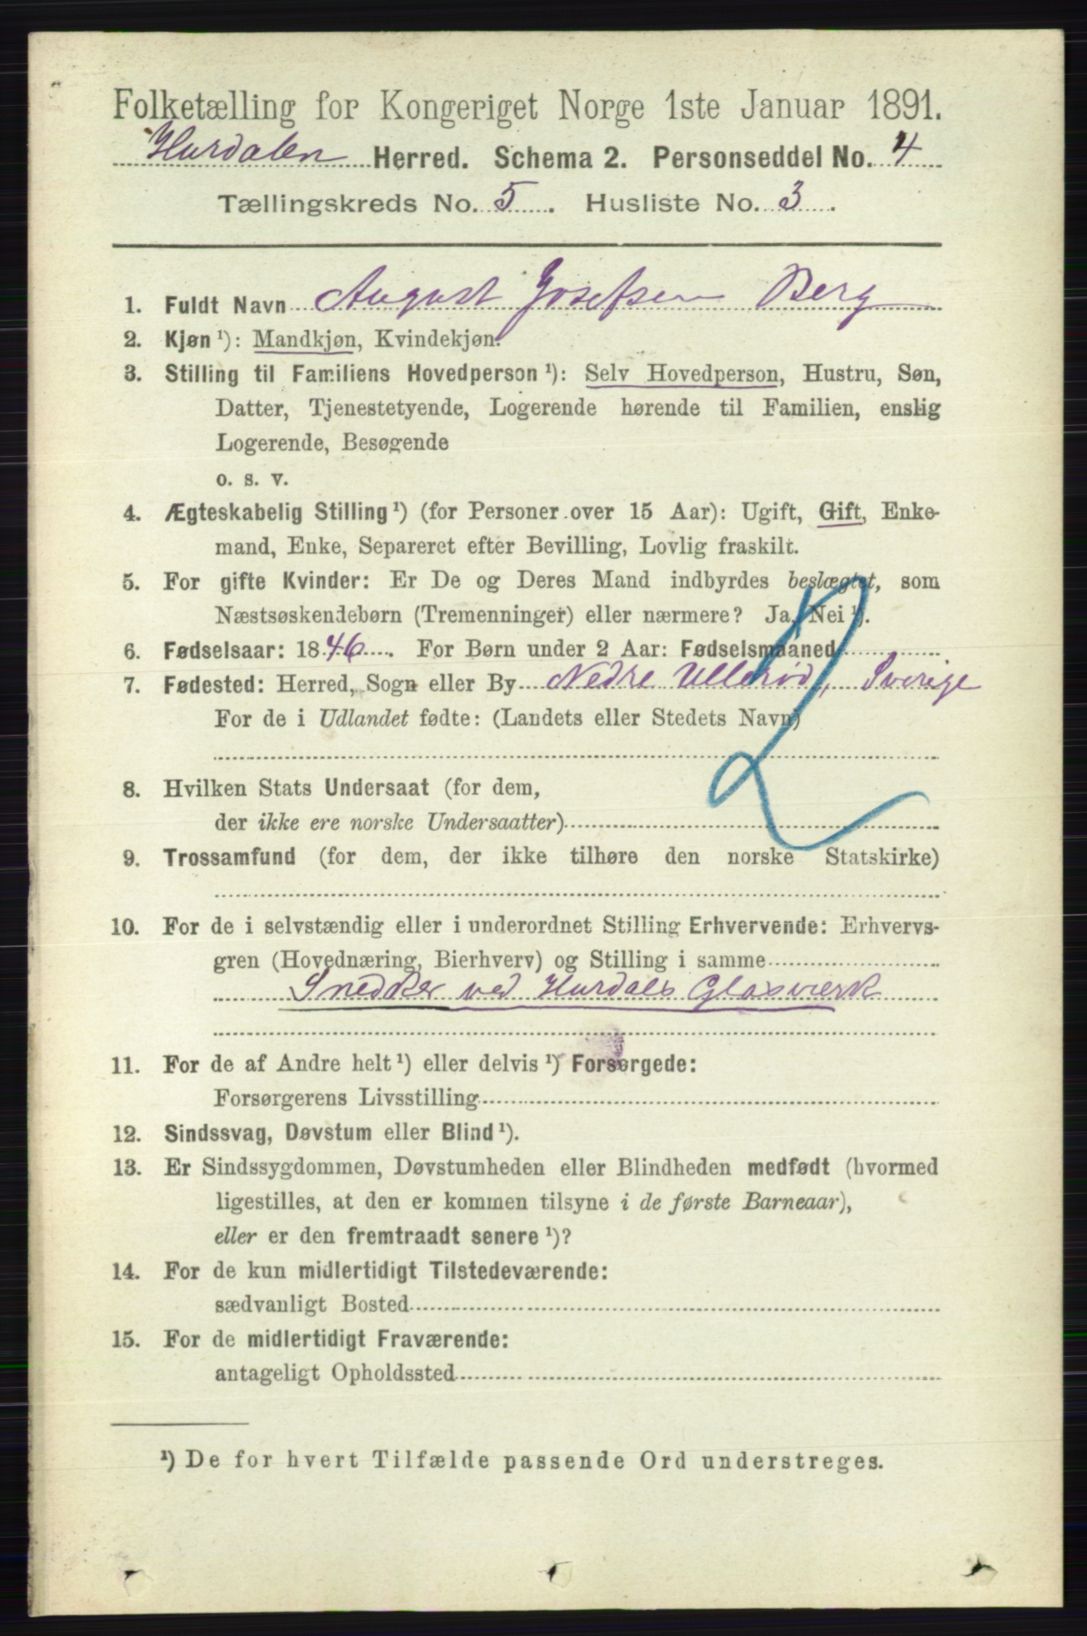 Folketælling for Kongeriget Norge 1ste Januar 1891.
Hurdalen Herred. Schema 2. Personseddel No. 4
Tællingskreds No. 5. Husliste No. 3.
1. Fuldt Navn August Josefsen Berg
2. Kjøn ¹): Mandkjøn, Kvindekjøn.
3. Stilling til Familiens Hovedperson ¹): Selv Hovedperson, Hustru, Søn,
Datter, Tjenestetyende, Logerende hørende til Familien, enslig
Logerende, Besøgende
o. s. v.
4. Ægteskabelig Stilling ¹) (for Personer over 15 Aar): Ugift, Gift, Enke-
mand, Enke, Separeret efter Bevilling, Lovlig fraskilt.
5. For gifte Kvinder: Er De og Deres Mand indbyrdes beslægtet, som
Næstsøskendebørn (Tremenninger) eller nærmere? Ja, Nei ¹).
6. Fødselsaar: 1846. For Børn under 2 Aar: Fødselsmaaned
7. Fødested: Herred, Sogn eller By Nedre Ullerød, Sverige
For de i Udlandet fødte: (Landets eller Stedets Navn)
8. Hvilken Stats Undersaat (for dem,
der ikke ere norske Undersaatter)
9. Trossamfund (for dem, der ikke tilhøre den norske Statskirke)
10. For de i selvstændig eller i underordnet Stilling Erhvervende: Erhvervs-
gren (Hovednæring, Bierhverv) og Stilling i samme
Snedker ved Hurdals Glasværk
11. For de af Andre helt ¹) eller delvis ¹) Forsørgede:
Forsørgerens Livsstilling
12. Sindssvag, Døvstum eller Blind ¹).
13. Er Sindssygdommen, Døvstumheden eller Blindheden medfødt (hvormed
ligestilles, at den er kommen tilsyne i de første Barneaar),
eller er den fremtraadt senere ¹)?
14. For de kun midlertidigt Tilstedeværende:
sædvanligt Bosted
15. For de midlertidigt Fraværende:
antageligt Opholdssted
¹) De for hvert Tilfælde passende Ord understreges.